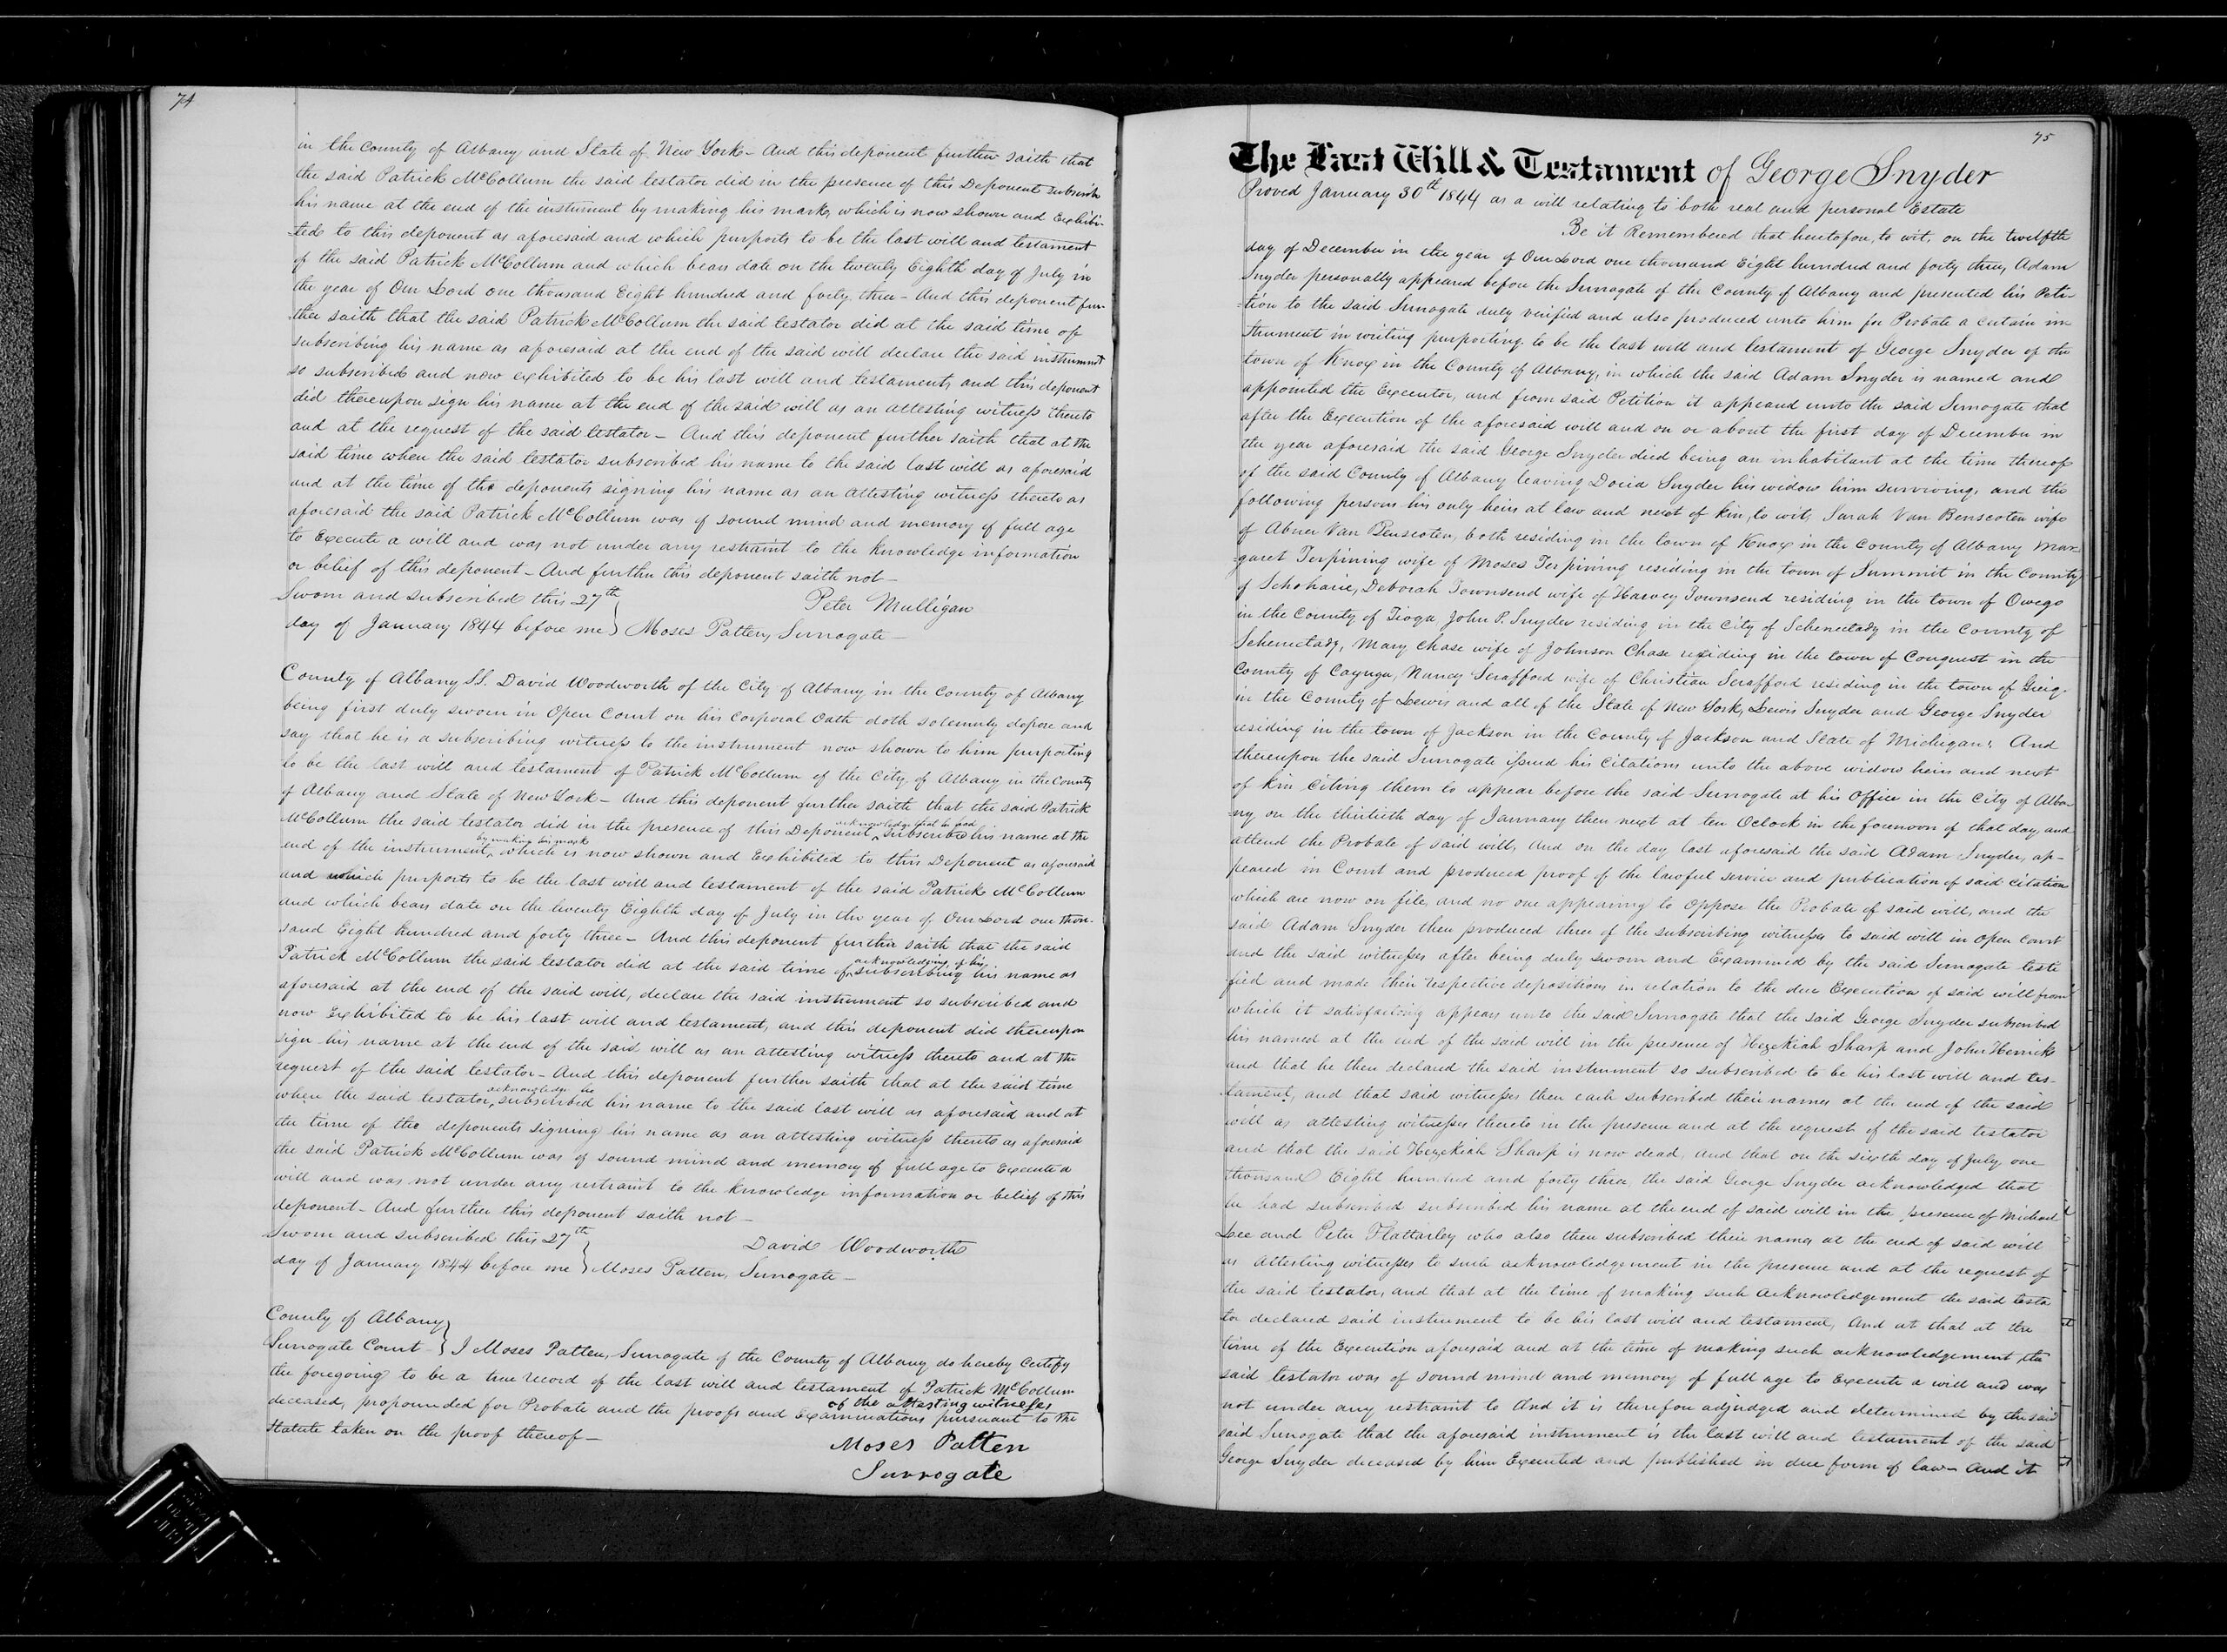 74
in the County of Albany and State of New York - And this deponent further saith that
the said Patrick McCollum the said testator did in the presence of this Deponent subscribe
his name at the end of the instrument by making his mark, which is now shown and Exhibi-
-ted to this deponent as aforesaid and which purports to be the last will and testament
of the said Patrick McCollum and which bears date on the twenty Eighth day of July in
the year of Our Lord one thousand Eight hundred and forty three - And this deponent fur-
ther saith that the said Patrick McCollum the said testator did at the said time of
subscribing his name as aforesaid at the end of the said will declare the said instrument
so subscribed and now exhibited to be his last will and testament, and this deponent
did thereupon sign his name at the end of the said will as an attesting witness thereto
and at the request of the said testator - And this deponent further saith that at the
said time when the said testator subscribed his name to the said last will as aforesaid
and at the time of the deponents signing his name as an attesting witness thereto as
aforesaid the said Patrick McCollum was of sound mind and memory of full age
to Execute a will and was not under any restraint to the knowledge information
or belief of this deponent - And further this deponent saith not -
Sworn and subscribed this 27th } Peter Mulligan
day of January 1844 before me } Moses Patten, Surrogate -
County of Albany SS. David Woodworth of the City of Albany in the County of Albany
being first duly sworn in Open Court on his Corporal Oath doth solemnly depose and
say that he is a subscribing witness to the instrument now shown to him purporting
to be the last will and testament of Patrick McCollum of the City of Albany in the County
of Albany and State of New York - And this deponent further saith that the said Patrick
McCollum the said testator did in the presence of this Deponent ^acknowledge that he had subscribed his name at the
end of the instrument, ^by making his mark which is now shown and Exhibited to this Deponent as aforesaid
and which purports to be the last will and testament of the said Patrick McCollum
and which bears date on the twenty Eighth day of July in the year of Our Lord one thou-
sand Eight hundred and forty three - And this deponent further saith that the said
Patrick McCollum the said testator did at the said time of ^acknowledging of his subscribing his name as
aforesaid at the end of the said will, declare the said instrument so subscribed and
now Exhibited to be his last will and testament, and this deponent did thereupon
sign his name at the end of the said will as an attesting witness thereto and at the
request of the said testator - And this deponent further saith that at the said time
when the said testator ^acknowledge he subscribed his name to the said last will as aforesaid and at
the time of the deponents signing his name as an attesting witness thereto as aforesaid
the said Patrick McCollum was of sound mind and memory of full age to Execute a
will and was not under any restraint to the knowledge information or belief of this
deponent - And further this deponent saith not -
Sworn and subscribed this 27th } David Woodworth
day of January 1844 before me } Moses Patten, Surrogate -
County of Albany }
Surrogate Court } I Moses Patten, Surrogate of the County of Albany do hereby Certify
the foregoing to be a true record of the last will and testament of Patrick McCollum
deceased, propounded for Probate and the proofs and Examinations ^of the attesting witnesses pursuant to the
Statute taken on the proof thereof -
Moses Patten
Surrogate
75
The Last Will & Testament of George Snyder
Proved January 30th 1844 as a will relating to both real and personal Estate
Be it Remembered that heretofore, to wit, on the twelfth
day of December in the year of Our Lord one thousand Eight hundred and forty three, Adam
Snyder personally appeared before the Surrogate of the County of Albany and presented his Peti-
-tion to the said Surrogate duly verified and also produced unto him for Probate a certain in-
strument in writing purporting to be the last will and testament of George Snyder of the
town of Knox in the County of Albany, in which the said Adam Snyder is named and
appointed the Executor, and from said Petition it appeared unto the said Surrogate that
after the Execution of the aforesaid will and on or about the first day of December in
the year aforesaid the said George Snyder died being an inhabitant at the time thereof
of the said County of Albany leaving Docia Snyder his widow him surviving, and the
following persons his only heirs at law and next of kin, to wit, Sarah Van Benscoten wife
of Abner Van Benscoten, both residing in the town of Knox in the County of Albany Mar-
-garet Terpining wife of Moses Terpining residing in the town of Summit in the County
of Schoharie, Deborah Townsend wife of Harvey Townsend residing in the town of Owego
in the County of Tioga, John P. Snyder residing in the City of Schenectady in the County of
Schenectady, Mary Chase wife of Johnson Chase residing in the town of Conquest in the
County of Cayuga, Nancy Serafford wife of Christian Serafford residing in the town of Greig-
in the County of Lewis and all of the State of New York, Lewis Snyder and George Snyder
residing in the town of Jackson in the County of Jackson and State of Michigan; And
thereupon the said Surrogate issued his Citations unto the above widow heirs and next
of kin citing them to appear before the said Surrogate at his Office in the City of Alba-
ny, on the thirtieth day of January then next at ten Oclock in the forenoon of that day, and
attend the Probate of said will, And on the day last aforesaid the said Adam Snyder, ap-
peared in Court and produced proof of the lawful service and publication of said Citation
which are now on file, and no one appearing to oppose the Probate of said will, and the
said Adam Snyder then produced three of the subscribing witnesses to said will in open Court
and the said witnesses after being duly sworn and Examined by the said Surrogate testi
fied and made their respective depositions in relation to the due Execution of said will from
which it satisfactorily appears unto the said Surrogate that the said George Snyder subscribed
his named at the end of the said will in the presence of Hezekiah Sharp and John Herrick
and that he then declared the said instrument so subscribed to be his last will and tes-
-tament, and that said witnesses then each subscribed their names at the end of the said
will as attesting witnesses thereto in the presence and at the request of the said testator
and that the said Hezekiah Sharp is now dead, and that on the sixth day of July one
thousand Eight hundred and forty three, the said George Snyder acknowledged that
he had subscribed subscribed his name at the end of said will in the presence of Michael
Lee and Peter Flattarley who also then subscribed their names at the end of said will
as attesting witnesses to such acknowledgement in the presence and at the request of
the said testator, and that at the time of making such acknowledgement the said testa
tor declared said instrument to be his last will and testament, And at that at the
time of the Execution aforesaid and at the time of making such acknowledgement, the
said testator was of sound mind and memory of full age to Execute a will and was
not under any restraint to And it is therefore adjudged and determined by the said
said Surrogate that the aforesaid instrument is the last will and testament of the said
George Snyder deceased by him Executed and published in due form of law - And it